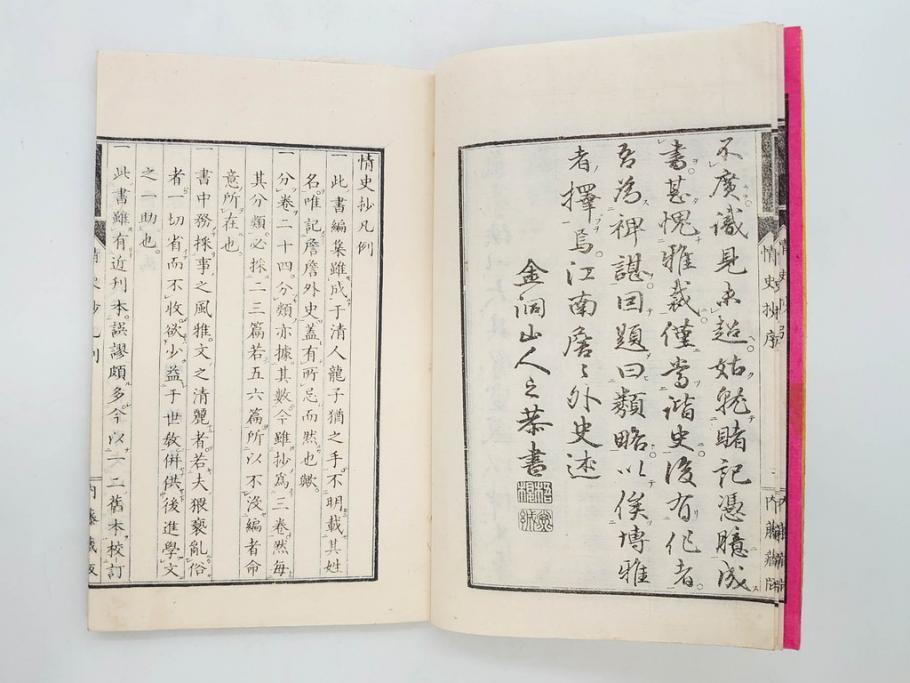 不廣識見未超姑就睹記憑臆成
書甚愧雅裁僅當諧史後有作者
吾為裨諶因題曰類略以俟博雅
者擇焉江南詹詹外史述
金洞山人之恭書
情史抄序
情史抄凡例
一此書編集雖成于清人龍子猶之手不明載其姓
名唯記詹詹外史蓋有所忌而然也歟
一分卷二十四分類亦據其數今雖抄為三卷然每
其分類必採二三篇若五六篇所以不沒編者命
意所在也
一書中務採事之風雅文之清麗者若夫猥褻亂俗
者一切省而不收欲少益于世教併供後進學文
之一助也
一此書雖有近刊本誤謬頗多今以一二舊本校訂
情史抄凡例